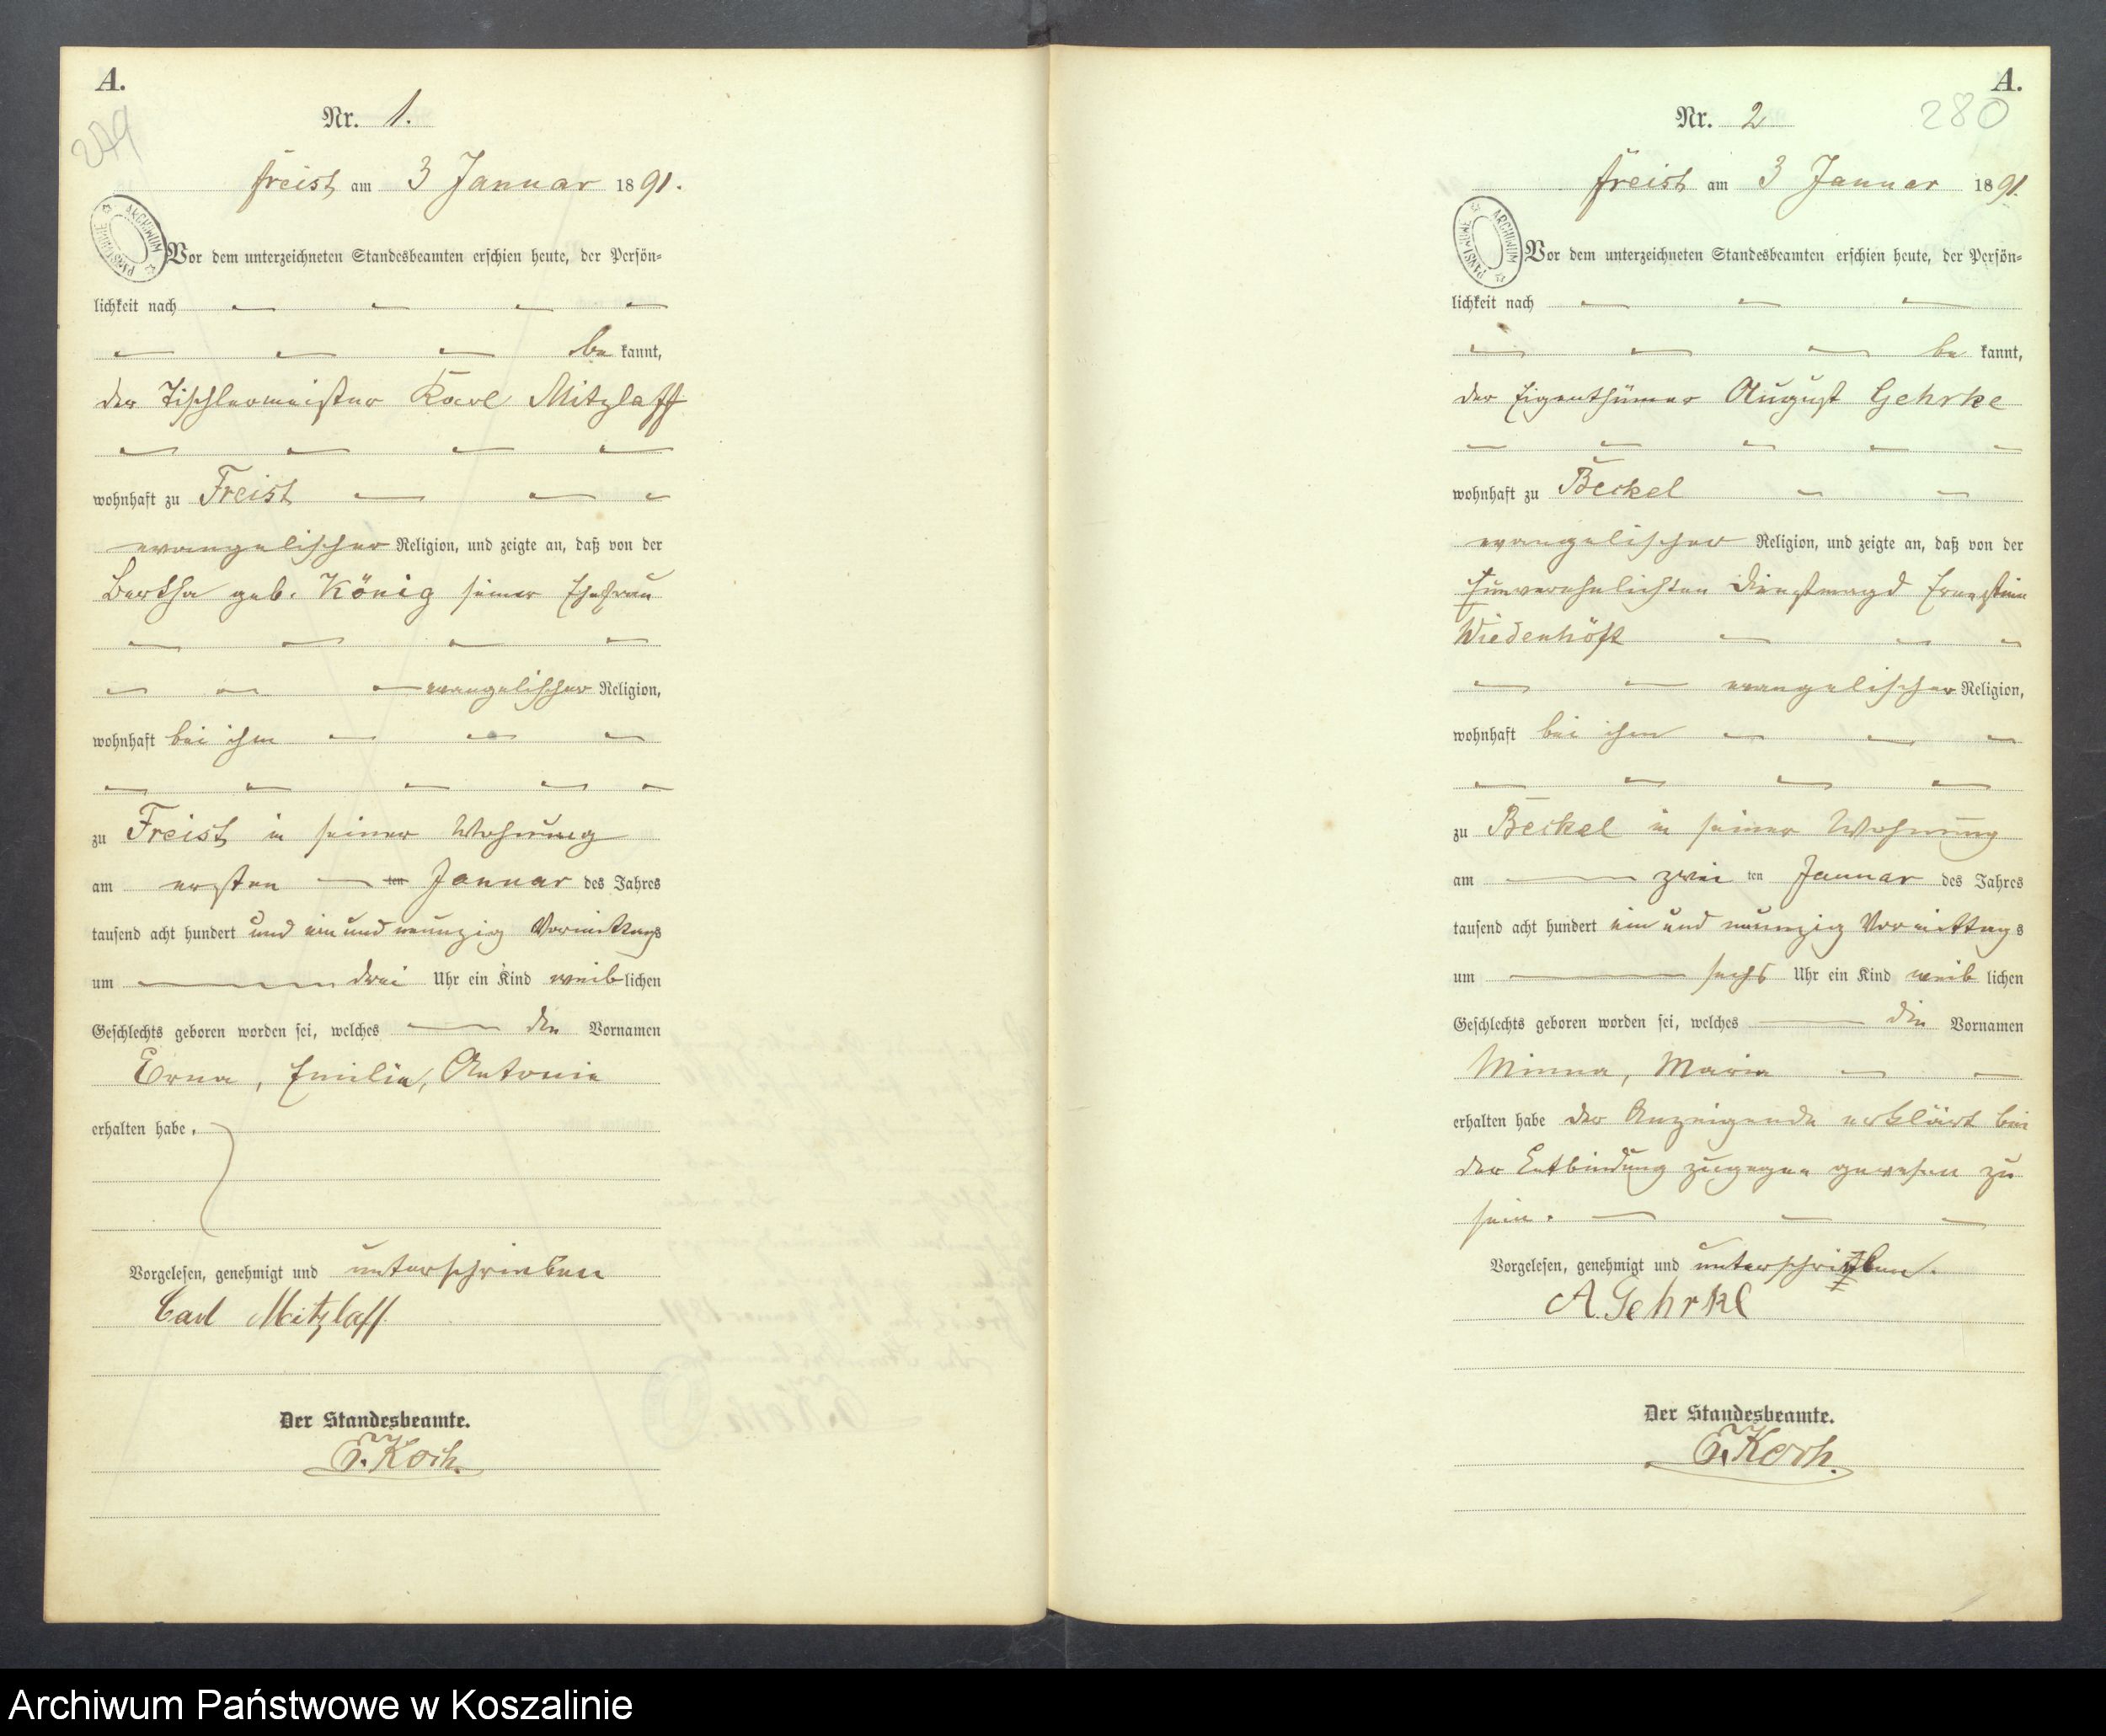 A.
279
Nr. 1.
Freist am 3 Januar 1891.
ARCHIWUM PAŃSTWOWE
Vor dem unterzeichneten Standesbeamten erschien heute, der Persön=
lichkeit nach
be kannt,
der Tischlermeister Karl Mitzlaff
wohnhaft zu Freist
evangelischer Religion, und zeigte an, daß von der
Bertha geb. König seiner Ehefrau
evangelischer Religion,
wohnhaft bei ihm
zu Freist in seiner Wohnung
am ersten ten Januar des Jahres
tausend acht hundert und ein und neunzig Vormittags
um drei Uhr ein Kind weiblichen
Geschlechts geboren worden sei, welches die Vornamen
Erna, Emilie, Antonie
erhalten habe.
Vorgelesen, genehmigt und unterschrieben
Carl Mitzlaff.
Der Standesbeamte.
Koch.
A.
280
Nr. 2
Freist am 3 Januar 1891.
ARCHIWUM PAŃSTWOWE
Vor dem unterzeichneten Standesbeamten erschien heute, der Persön=
lichkeit nach
be kannt,
der Eigenthümer August Gehrke
wohnhaft zu Beckel
evangelischer Religion, und zeigte an, daß von der
unverehelichten Dienstmagd Ernestine
Wiedenhöft
evangelischer Religion,
wohnhaft bei ihm
zu Beckel in seiner Wohnung
am zwei ten Januar des Jahres
tausend acht hundert ein und neunzig Vormittags
um sechs Uhr ein Kind weib lichen
Geschlechts geboren worden sei, welches die Vornamen
Minna, Marie
erhalten habe der Anzeigende erklärt bei
der Entbindung zugegen gewesen zu
sein.
Vorgelesen, genehmigt und unterschrieben.
A. Gehrke
Der Standesbeamte.
Koch.
Archiwum Państwowe w Koszalinie